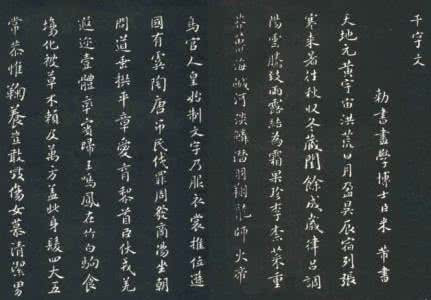 千字文
勅書畫學博士臣米芾書
天地元黃宇宙洪荒日月盈昃辰宿列張
寒来暑往秋收冬藏閏餘成歲律呂調
陽雲騰致雨露結為霜果珍李柰菜重
芥薑海鹹河淡鱗潛羽翔龍師火帝
鳥官人皇始制文字乃服衣裳推位遜
國有虞陶唐弔民伐罪周發商湯坐朝
問道垂拱平章愛育黎首臣伏戎羌
遐迩壹體率賓歸王鳴鳳在竹白駒食
場化被草木賴及萬方蓋此身髮四大五
常恭惟鞠養豈敢毀傷女慕清潔男